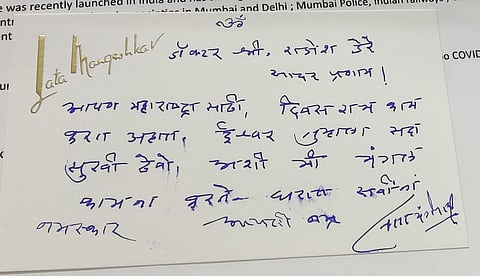 e was recently launched in India and has
in Mumbai and Delhi ; Mumbai Police, Indian railways,
ॐ
Lata Mangeshkar
डॉक्टर श्री. राजेश डेरे
सादर प्रणाम !
आपण महाराष्ट्रा साठी, दिवस रात्र काम
करत आहात, ईश्वर तुम्हाला सदा
सुखी ठेवो, अशी मी मंगल
कामना करते - घरात सर्वांना
नमस्कार
o COVID